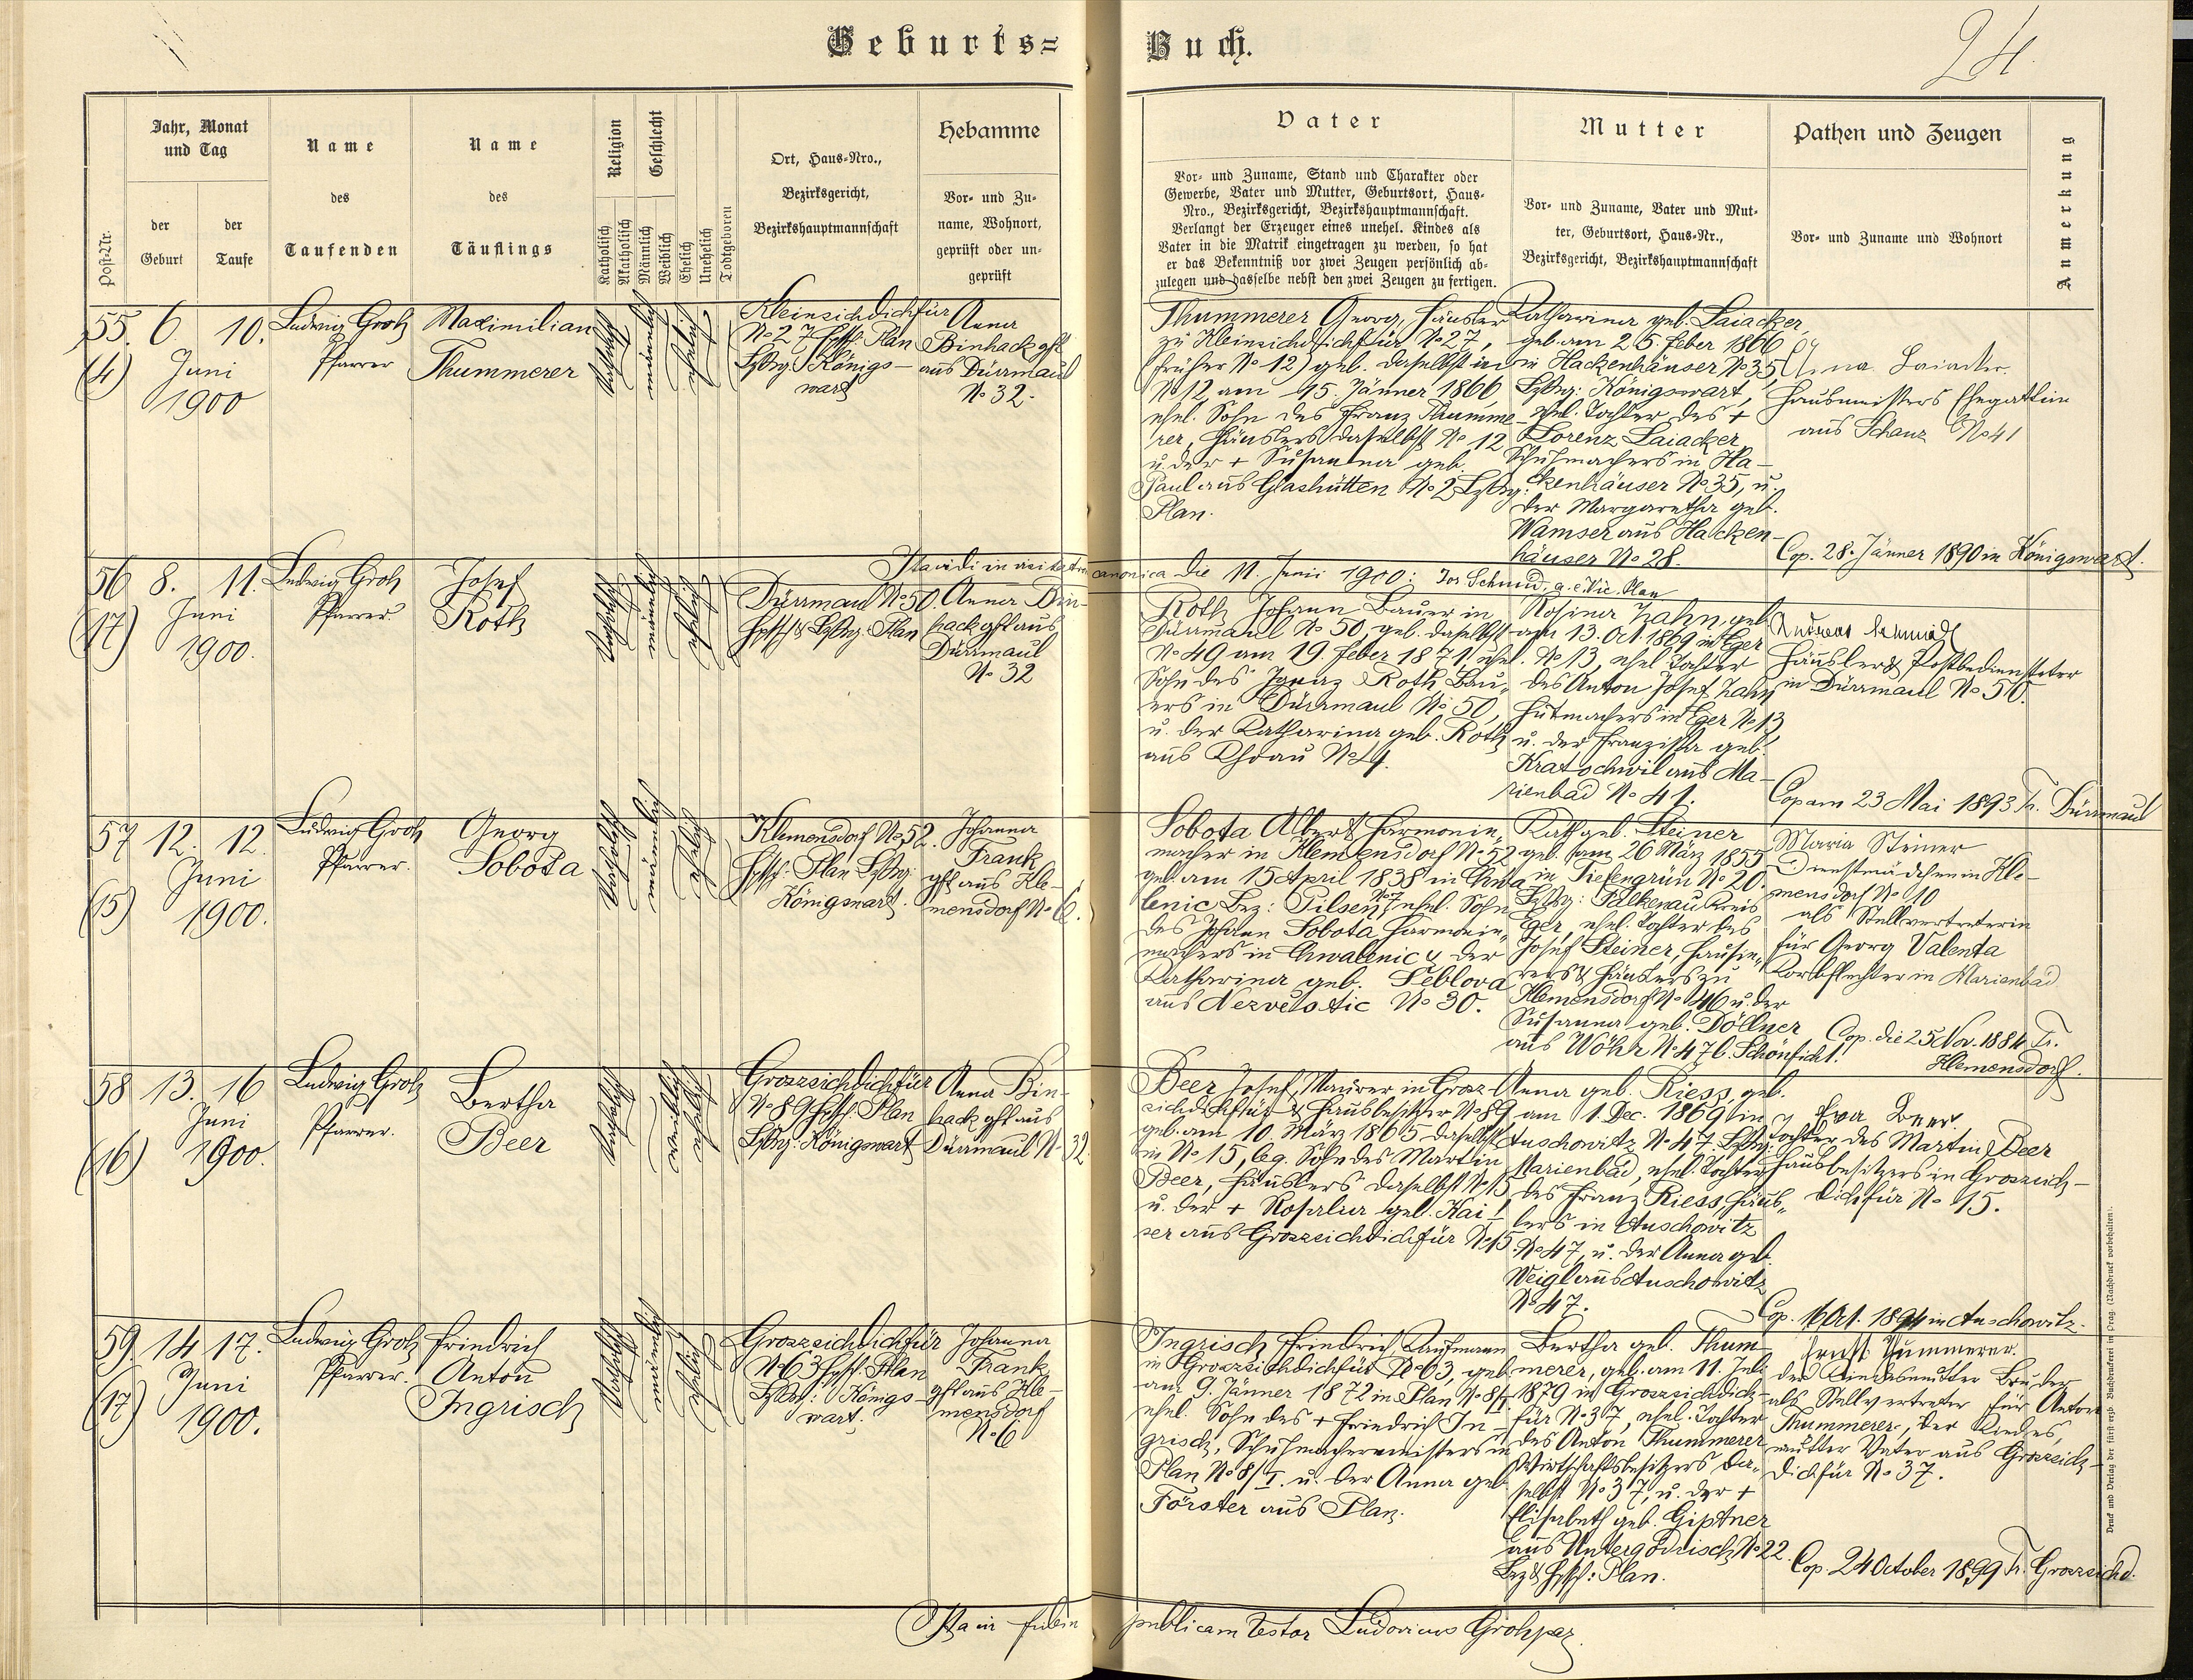 Geburts=Buch.
24.
Post-Nr.
Jahr, Monat
und Tag
der
Geburt
der
Taufe
Name
des
Taufenden
Name
des
Täuflings
Religion
Katholisch
Akatholisch
Geschlecht
Männlich
Weiblich
Ehelich
Unehelich
Todtgeboren
Ort, Haus-Nro.,
Bezirksgericht,
Bezirkshauptmannschaft
Hebamme
Vor- und Zu-
name, Wohnort,
geprüft oder un-
geprüft
Vater
Vor- und Zuname, Stand und Charakter oder
Gewerbe, Vater und Mutter, Geburtsort, Haus-
Nro., Bezirksgericht, Bezirkshauptmannschaft.
Verlangt der Erzeuger eines unehel. Kindes als
Vater in die Matrik eingetragen zu werden, so hat
er das Bekenntniß vor zwei Zeugen persönlich ab-
zulegen und dasselbe nebst den zwei Zeugen zu fertigen.
Mutter
Vor- und Zuname, Vater und Mut-
ter, Geburtsort, Haus-Nr.,
Bezirksgericht, Bezirkshauptmannschaft
Pathen und Zeugen
Vor- und Zuname und Wohnort
Anmerkung
55. 6. 10.
(4) Juni
1900
Ludwig Groh
Pfarrer
Maximilian
Thummerer
katholisch
männlich
ehelich
Kleinsichdichfür
No 27 Hptsch. Plan
Bzbg. Königs-
wart
Anna
Binhack gft
aus Dürrmaul
No 32.
Thummerer Georg, Häusler
zu Kleinsichdichfür No 27,
(früher No 12) geb. daselbst in
No 12 am 15. Jänner 1866
ehel. Sohn des Franz Thumme-
rer, Häuslers daselbst No 12
u. der + Susanna geb.
Paul aus Glashütten No 2 Bzbg.
Plan.
Katharina geb. Laiacker,
geb. am 25. Feber 1866
in Hackenhäuser No 35,
Bzbg: Königswart,
ehel. Tochter des +
Lorenz Laiacker
Schuhmachers in Ha-
ckenhäuser No 35, u.
der Margaretha geb.
Wamser aus Hacken-
häuser No 28.
Anna Laiacker
Hausmeisters Ehegattin
aus Schanz No 41
Cop. 28. Jänner 1890 in Königswart.
Ita vidi in visitatione canonica die 11. Junii 1900: Jos Schmid, a. e. Vic. Plan
56 8. 11.
(17) Juni
1900.
Ludwig Groh
Pfarrer.
Josef
Roth
katholisch
männlich
ehelich
Dürrmaul No 50.
Hptsch & Bzbg: Plan
Anna Bin-
hack gft aus
Dürrmaul
No 32
Roth Johann Bauer in
Dürrmaul No 50, geb. daselbst
No 49 am 19. Feber 1871, ehel.
Sohn des Ignaz Roth Bau-
ers in Dürrmaul No 50,
u. der Katharina geb. Roth
aus Khoau No 4.
Rosina Zahn, geb.
am 13. Oct. 1869 in Eger
No 13, ehel Tochter
des Anton Josef Zahn
Hutmachers in Eger No 13
u. der Franziska geb.
Kratochwil aus Ma-
rienbad No 41.
Andreas Schmidt
Häusler & Postbediensteter
in Dürrmaul No 50.
Cop am 23 Mai 1893 Tr. Dürrmaul
57 12. 12.
(15) Juni
1900.
Ludwig Groh
Pfarrer.
Georg
Sobota
katholisch
männlich
ehelich
Klemensdorf No 52.
Hptsch: Plan Bzbg:
Königswart.
Johanna
Frank
gft aus Kle-
mensdorf No 6.
Sobota Albert Harmonie-
macher in Klemensdorf No 52
geb. am 15 April 1838 in Chwa
lenic Bez: Pilsen No 7, ehel. Sohn
des Johann Sobota Harmonie-
machers in Chwalenic u. der
Katharina geb. Leblova
aus Nezvestic No 30.
Kath geb. Steiner
geb. am 26 März 1855
in Tiefengrün No 20.
Bzbg: Falkenau Kreis
Eger, ehel. Tochter des
Josef Steiner, Hausie-
rers & Häuslers zu
Klemensdorf No 46 u. der
Susanna geb. Döllner
aus Wöhr No 47 b. Schönficht.
Maria Steiner
Dienstmädchen in Kle-
mensdorf No 10
als Stellvertreterin
für Georg Valenta
Korbflechter in Marienbad
Cop. die 25 Nov. 1884 Tr.
Klemensdorf.
58 13. 16
(16) Juni
1900.
Ludwig Groh
Pfarrer.
Bertha
Beer
katholisch
weiblich
ehelich
Groszsichdichfür
No 89 Hptsch. Plan
Bzbg: Königswart
Anna Bin-
hack gft aus
Dürrmaul No 32
Beer Josef, Maurer in Grosz-
sichdichfür & Hausbesitzer No 89
geb. am 10. März 1865 daselbst
in No 15, leg. Sohn des Martin
Beer, Häuslers daselbst No 15
u. der + Rosalia geb. Kai-
ser aus Groszsichdichfür No 15.
Anna geb. Riess, geb.
am 1. Dec. 1869 in
Auschowitz No 47 Bzbg:
Marienbad, ehel. Tochter
des Franz Riess, Häus-
lers in Auschowitz
No 47, u. der Anna geb.
Weigl aus Auschowitz
No 47.
Eva Beer.
Tochter des Martin Beer
Hausbesitzers in Groszsich-
dichfür No 15.
Cop. 16 Oct. 1894 in Auschowitz.
59. 14 17.
(17) Juni
1900.
Ludwig Groh
Pfarrer.
Friedrich
Anton
Ingrisch
katholisch
männlich
ehelich
Groszsichdichfür
No 63 Hptsch. Plan
Bzbg: Königs-
wart.
Johanna
Frank
gft aus Kle-
mensdorf
No 6
Ingrisch Friedrich, Kaufmann
in Groszsichdichfür No 63, geb.
am 9. Jänner 1872 in Plan No 8/I
ehel. Sohn des + Friedrich In-
grisch, Schuhmachermeisters in
Plan No 8/I. u. der Anna geb
Förster aus Plan.
Bertha geb. Thum-
merer, geb. am 11. Juli
1879 in Groszsichdich-
für No 37, ehel. Tochter
des Anton Thummerer
Wirtschaftsbesitzers da-
selbst No 37, u. der +
Elisabeth geb. Giptner
aus Untergodrisch No 22.
Bez & Hptsch: Plan.
Ernst Thummerer.
der Kindesmutter Bruder
als Stellvertreter für Anton
Thummerer, der Kindes
mutter Vater aus Groszsich-
dichfür No 37.
Cop. 24 October 1899 Tr. Groszsichd.
Ita in fidem publicam testor Ludovicus Groh par.
Druck und Verlag der fürst-erzb. Buchdruckerei in Prag. (Nachdruck vorbehalten).